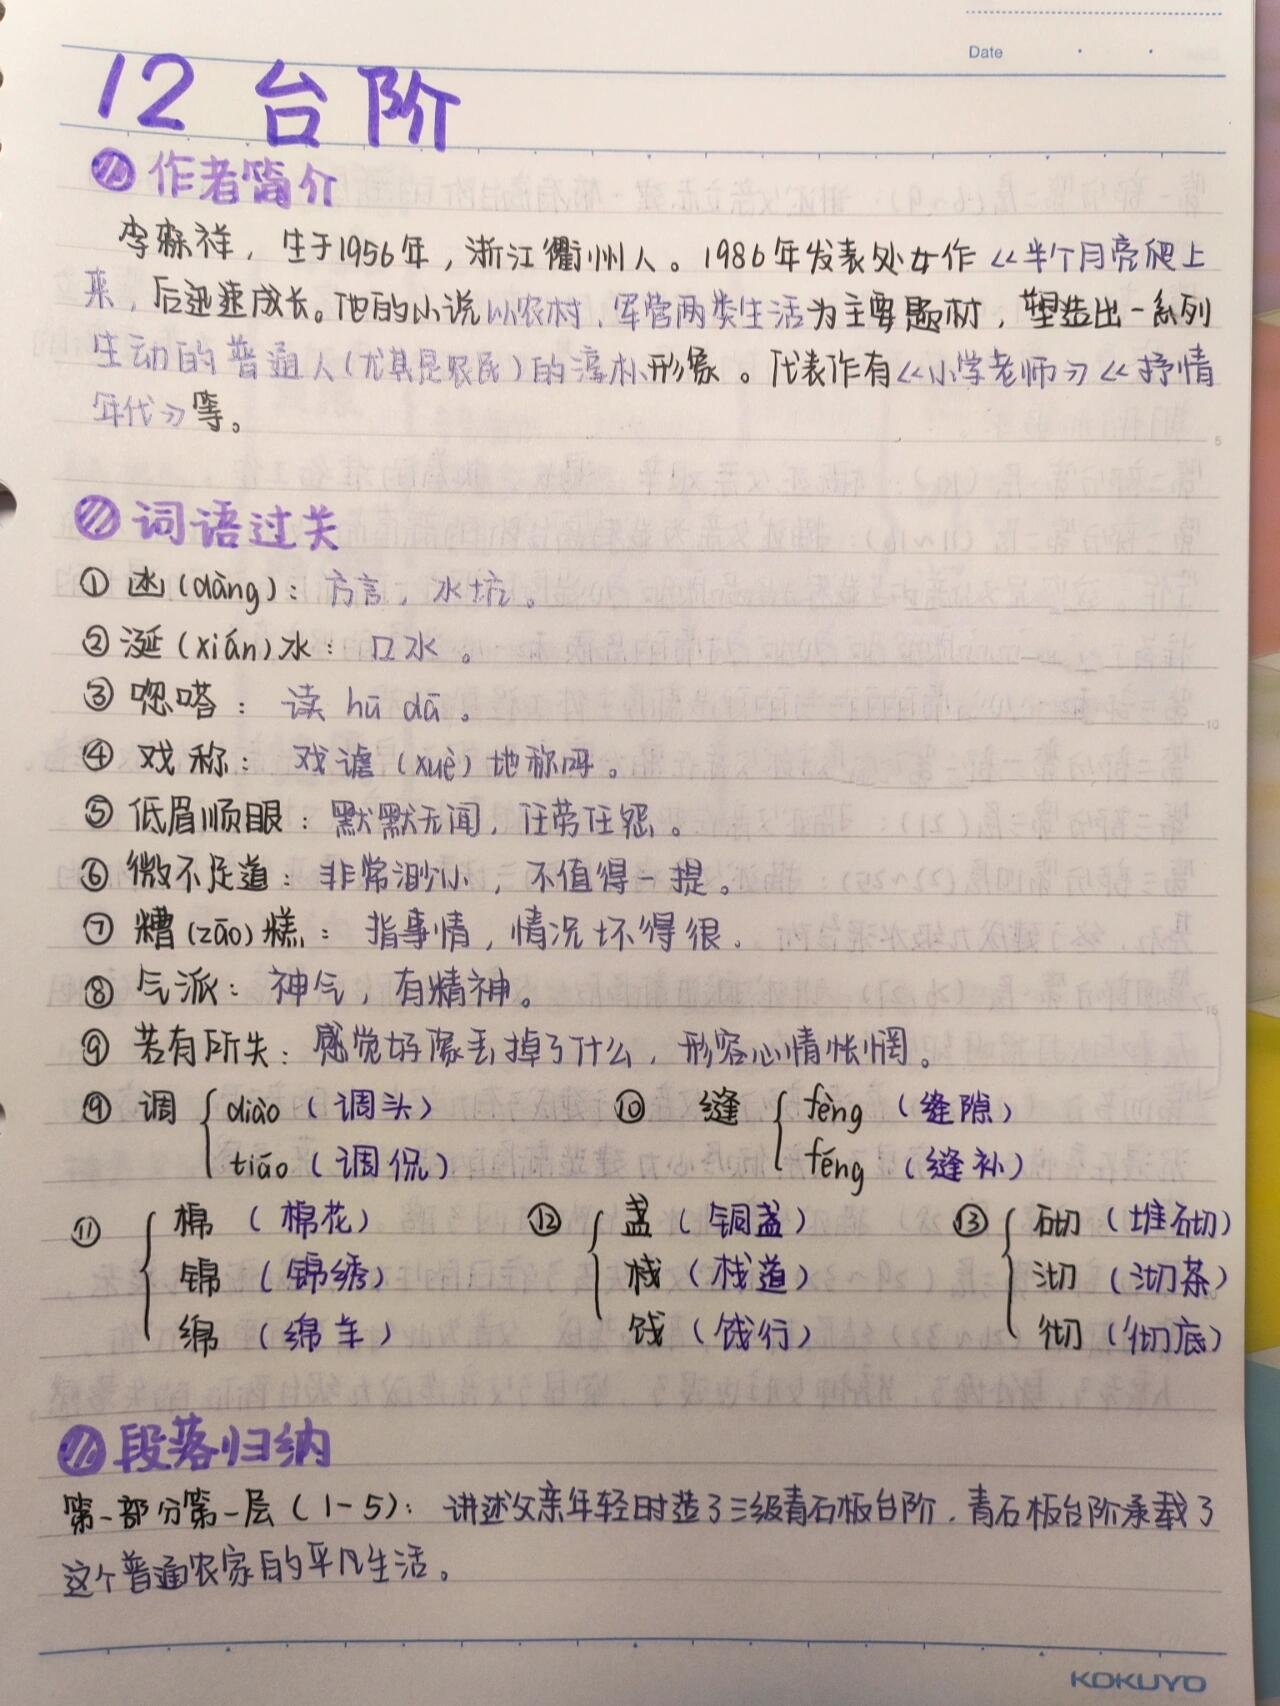 Date
12 台阶
作者简介
李森祥，生于1956年，浙江衢州人。1986年发表处女作《半个月亮爬上
来，后迅速成长。他的小说以农村、军营两类生活为主要题材，塑造出一系列
生动的普通人(尤其是农民)的淳朴形象。代表作有《小学老师》《抒情
年代》等。
词语过关
① 凼(dàng)：方言，水坑。
② 涎(xián)水：口水。
③ 唿嗒：读 hū dā。
④ 戏称：戏谑(xuè)地称呼。
⑤ 低眉顺眼：默默无闻，任劳任怨。
⑥ 微不足道：非常渺小，不值得一提。
⑦ 糟(zāo)糕：指事情，情况坏得很。
⑧ 气派：神气，有精神。
⑨ 若有所失：感觉好像丢掉了什么，形容心情怅惘。
⑨ 调 diào (调头) ⑩ 缝 fèng (缝隙)
tiáo (调侃) féng (缝补)
⑪ 棉 (棉花) ⑫ 盏 (铜盏) ⑬ 砌 (堆砌)
锦 (锦绣) 栈 (栈道) 沏 (沏茶)
绵 (绵羊) 饯 (饯行) 彻 (彻底)
段落归纳
第一部分第一层(1-5)：讲述父亲年轻时造了三级青石板台阶，青石板台阶承载了
这个普通农家的平凡生活。
KOKUYO